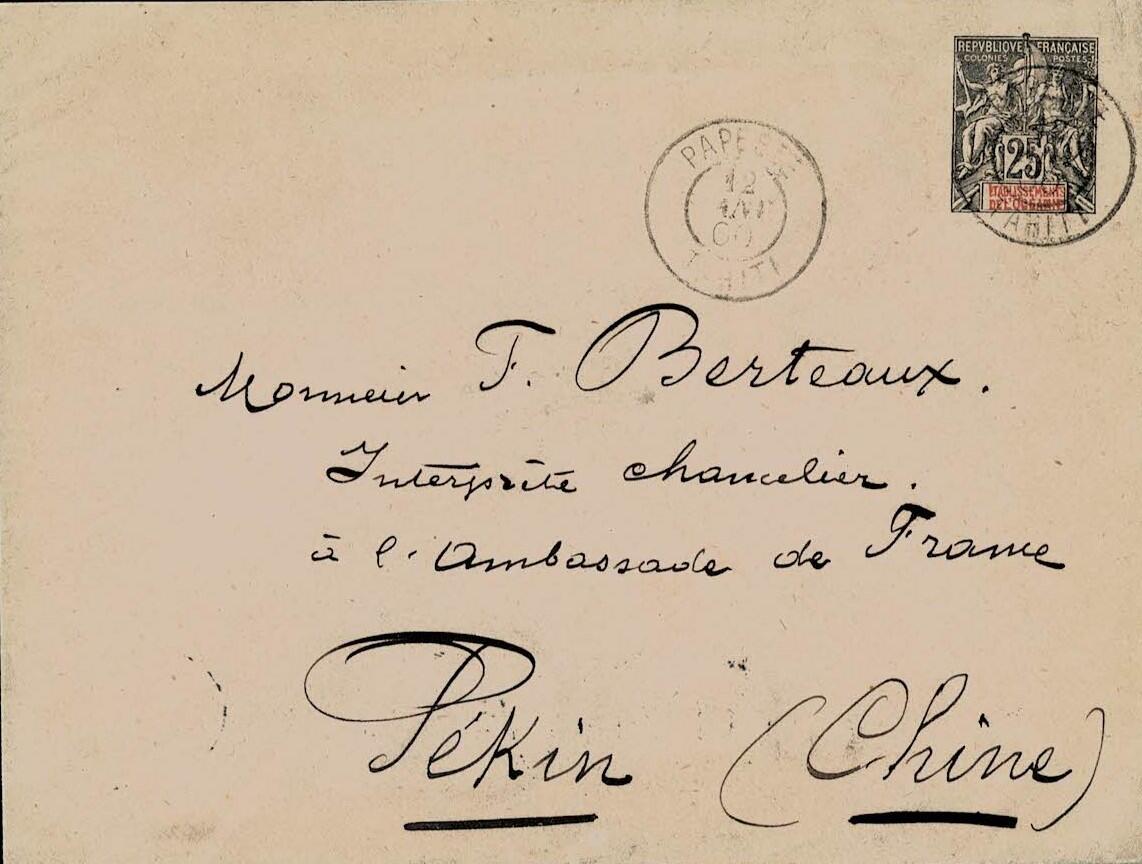 REPVBLIQVE FRANÇAISE
COLONIES POSTES
25
ÉTABLISSEMENTS
DE L'OCÉANIE
TAHITI
PAPEETE
12
00
TAHITI
Monsieur F. Berteaux.
Interprète chancelier.
à l'Ambassade de France
Pékin (Chine)